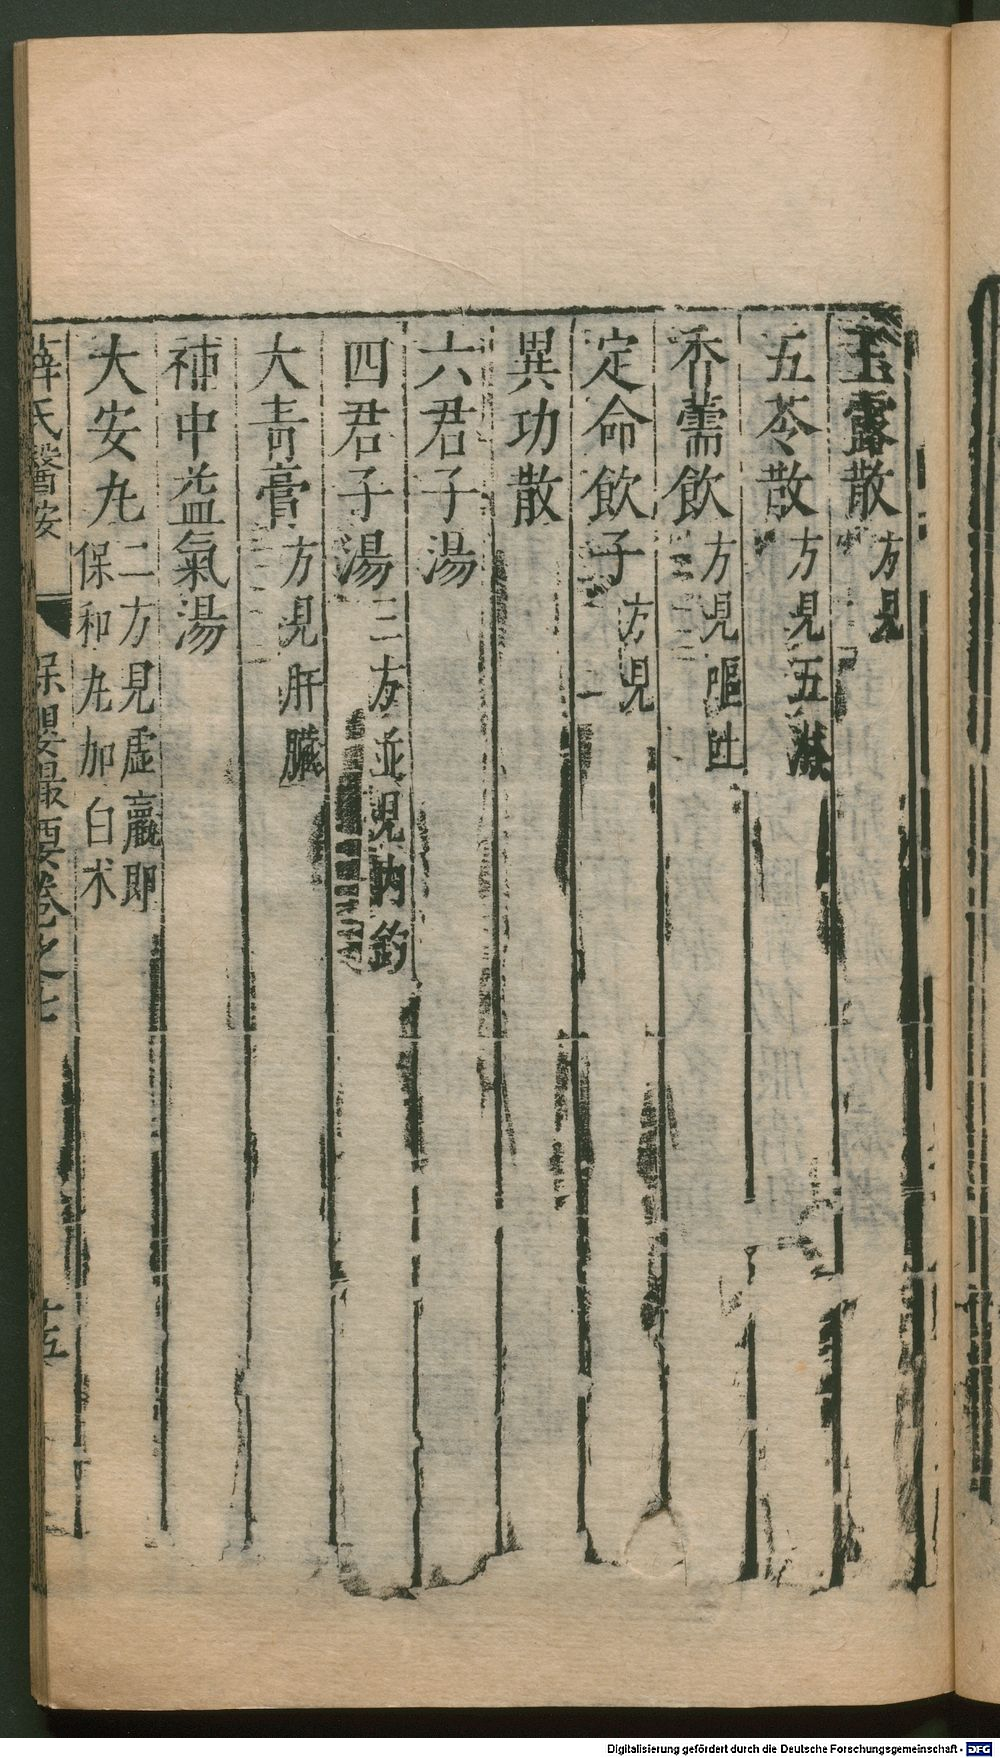 玉露散方見
五苓散方見五淋
香薷飲方見嘔吐
定命飲子方見
異功散
六君子湯
四君子湯三方並見內釣
大青膏方見肝臟
補中益氣湯
大安丸二方見虛羸即
保和丸加白术
薛氏醫按
保嬰撮要卷之七
十五
Digitalisierung gefördert durch die Deutsche Forschungsgemeinschaft - DFG